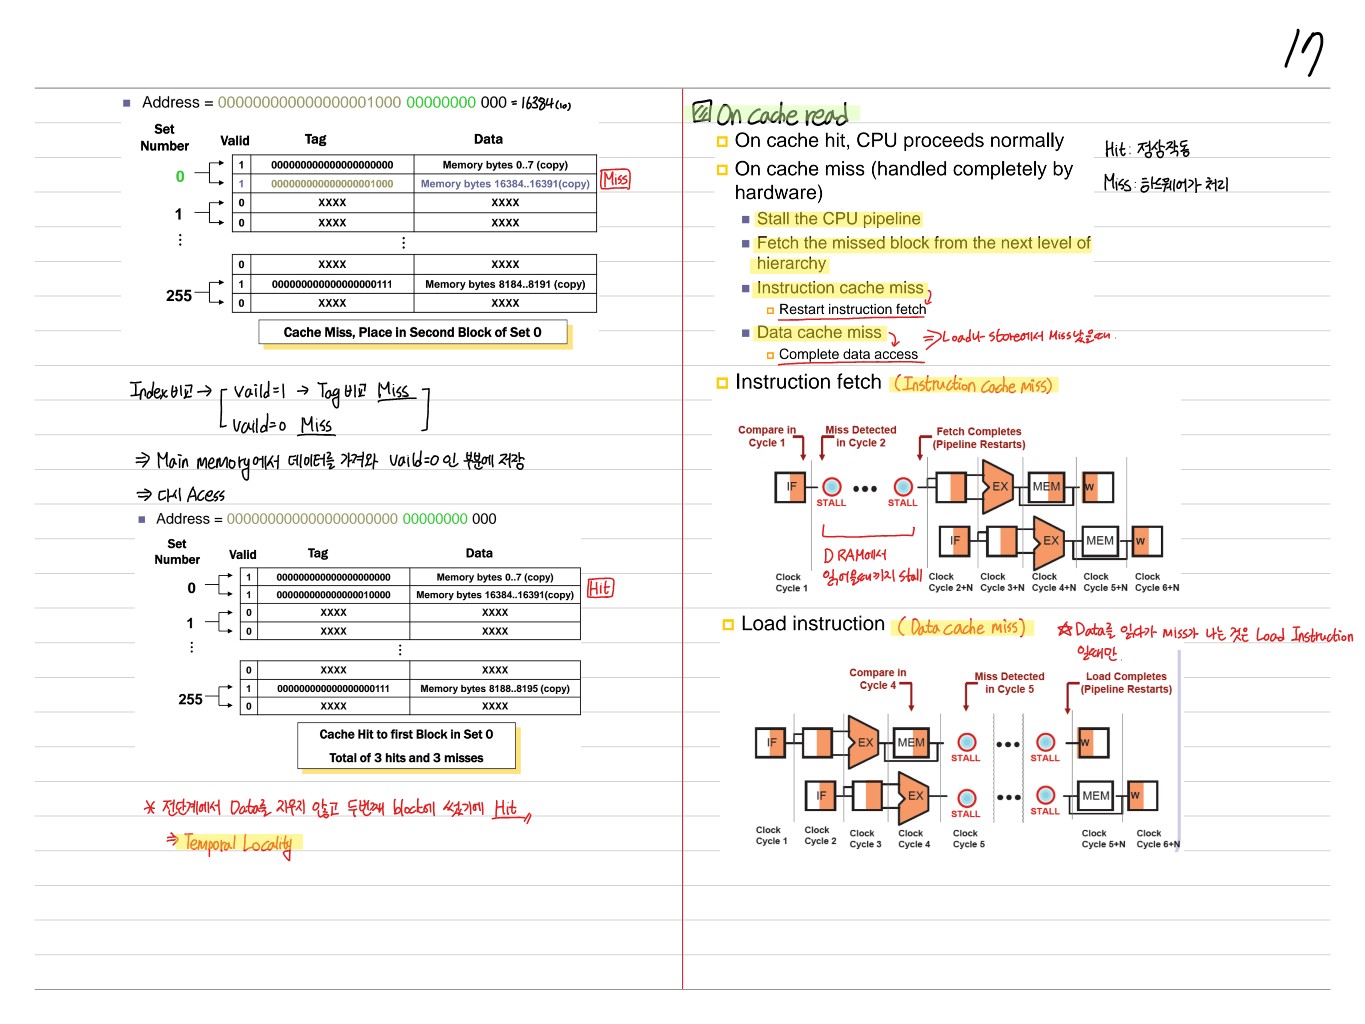 17
Address = 000000000000000001000 00000000 000 = 16384(10)
Set Number Valid Tag Data
0
1 000000000000000000000 Memory bytes 0..7 (copy)
1 000000000000000001000 Memory bytes 16384..16391(copy) Miss
1
0 XXXX XXXX
0 XXXX XXXX
0 XXXX XXXX
255
1 000000000000000000111 Memory bytes 8184..8191 (copy)
0 XXXX XXXX
Cache Miss, Place in Second Block of Set 0
Index 비교 → vaild=1 → Tag 비교 Miss
vaild=0 Miss
⇒ Main memory에서 데이터를 가져와 vaild=0 인 부분에 저장
⇒ 다시 Acess
Address = 000000000000000000000 00000000 000
Set Number Valid Tag Data
0
1 000000000000000000000 Memory bytes 0..7 (copy)
1 000000000000000010000 Memory bytes 16384..16391(copy) Hit
1
0 XXXX XXXX
0 XXXX XXXX
0 XXXX XXXX
255
1 000000000000000000111 Memory bytes 8188..8195 (copy)
0 XXXX XXXX
Cache Hit to first Block in Set 0
Total of 3 hits and 3 misses
* 전단계에서 Data를 지우지 않고 두번째 block에 썼기에 Hit
⇒ Temporal Locality
On cache read
On cache hit, CPU proceeds normally
Hit: 정상작동
On cache miss (handled completely by
hardware)
Miss: 하드웨어가 처리
Stall the CPU pipeline
Fetch the missed block from the next level of
hierarchy
Instruction cache miss
Restart instruction fetch
Data cache miss ⇒ Load나 Store에서 Miss났을때.
Complete data access
Instruction fetch (Instruction cache miss)
Compare in Cycle 1
Miss Detected in Cycle 2
Fetch Completes (Pipeline Restarts)
IF STALL ••• STALL EX MEM W
IF EX MEM W
DRAM에서
읽어올때까지 stall
Clock Cycle 1
Clock Cycle 2+N
Clock Cycle 3+N
Clock Cycle 4+N
Clock Cycle 5+N
Clock Cycle 6+N
Load instruction (Data cache miss)
☆ Data를 읽다가 miss가 나는 것은 Load Instruction
일때만.
Compare in Cycle 4
Miss Detected in Cycle 5
Load Completes (Pipeline Restarts)
IF EX MEM STALL ••• STALL W
IF EX STALL ••• STALL MEM W
Clock Cycle 1
Clock Cycle 2
Clock Cycle 3
Clock Cycle 4
Clock Cycle 5
Clock Cycle 5+N
Clock Cycle 6+N